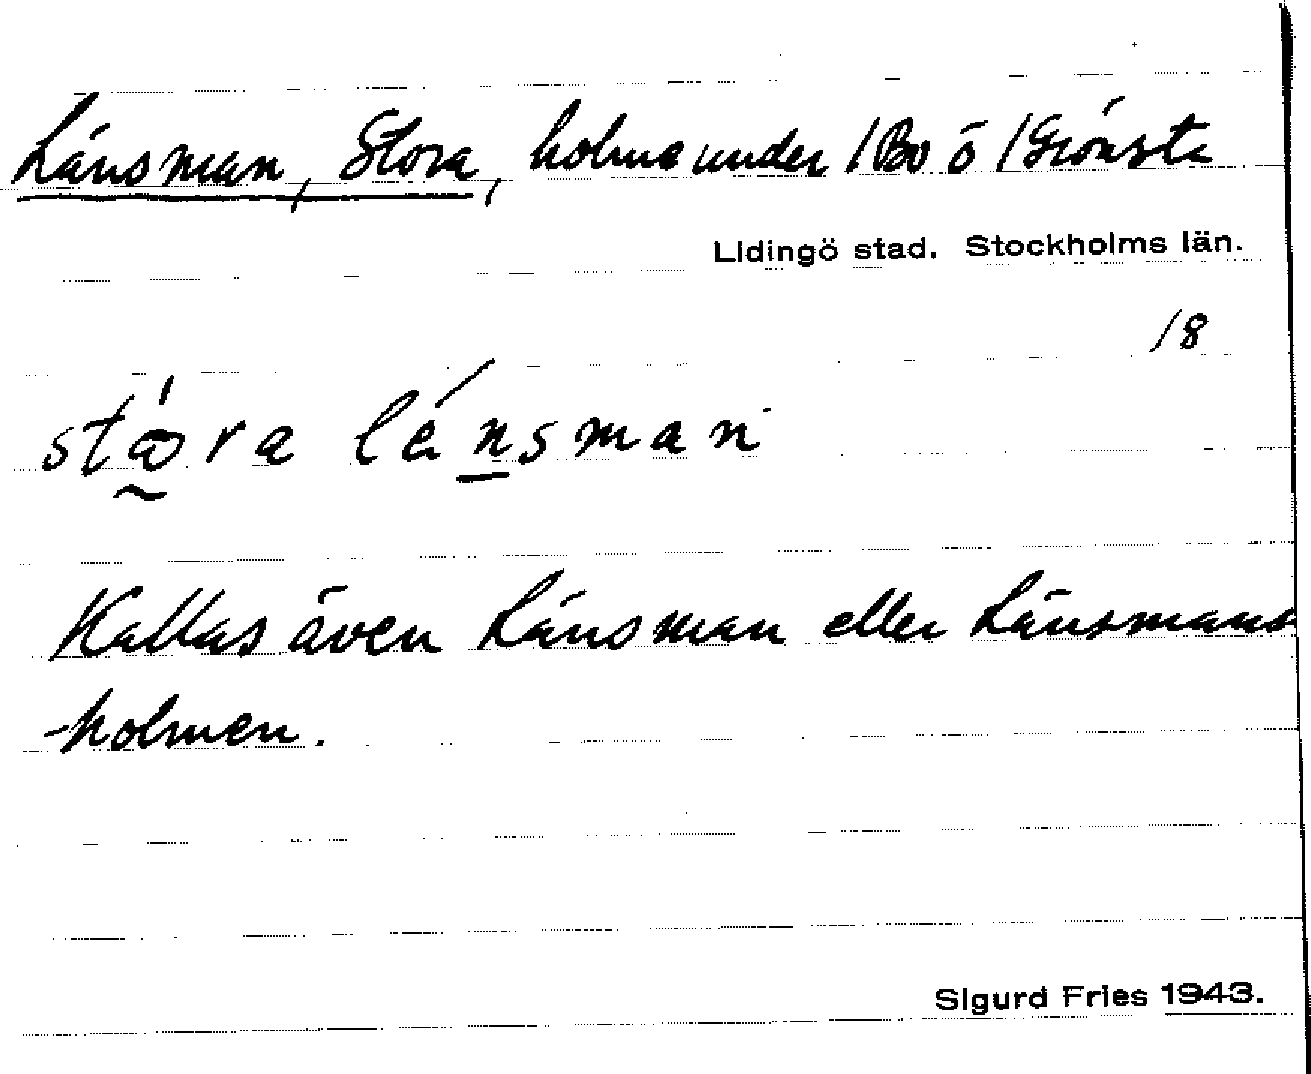 Länsman, Stora, holme under 1 Bo o 1 Grönsta
Lidingö stad. Stockholms län.
18
länsman
Kallas även Länsman eller Länsmans
-holmen.
Sigurd Fries 1943.